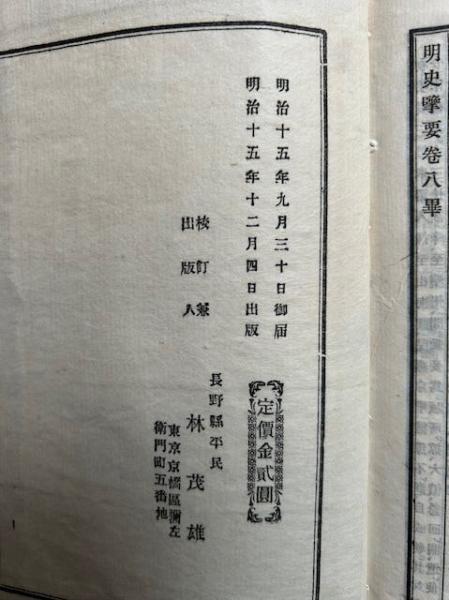 明史擥要卷八畢
明治十五年九月三十日御届
明治十五年十二月四日出版
定價金貳圓
校訂兼
出版人
長野縣平民
林茂雄
東京京橋區彌左
衛門町五番地